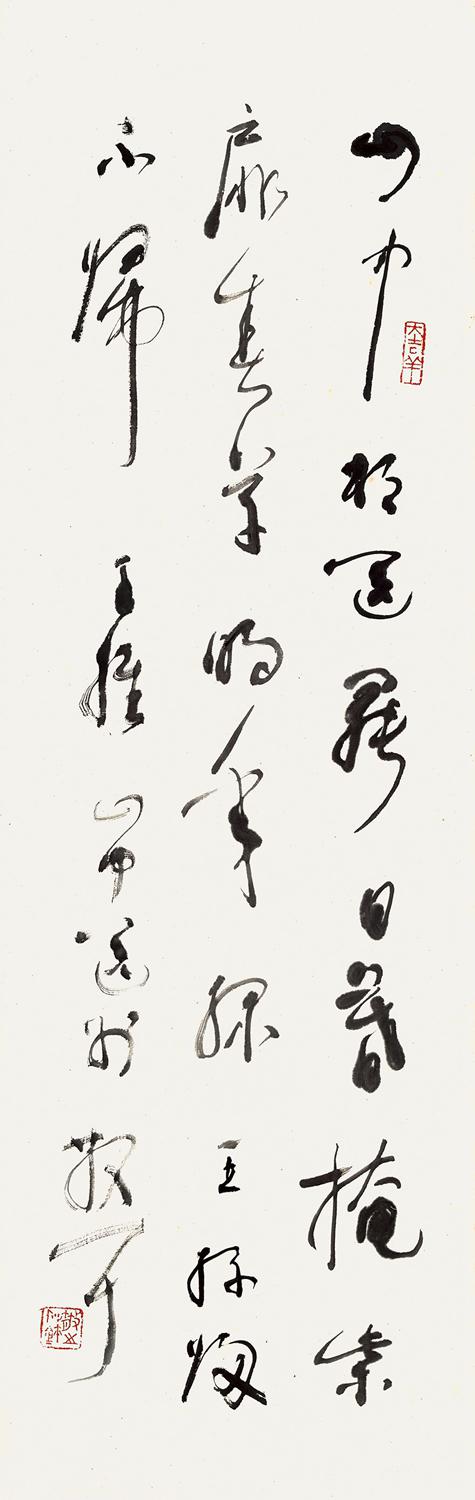 山中相送罷日暮掩柴
扉春草明年綠王孫歸
不歸 王維山中送別
大吉羊